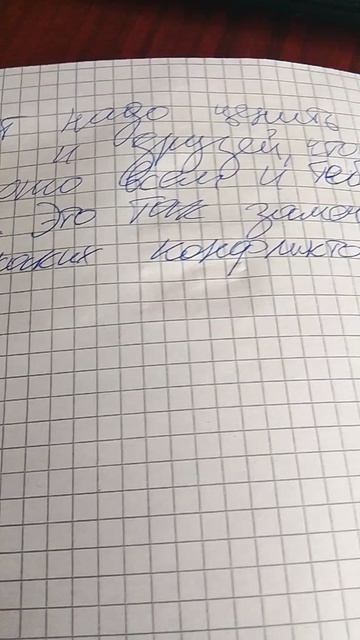 т надо ценить
и друзей, что
ото всем и теп
. Это так замеч
каких конфликто